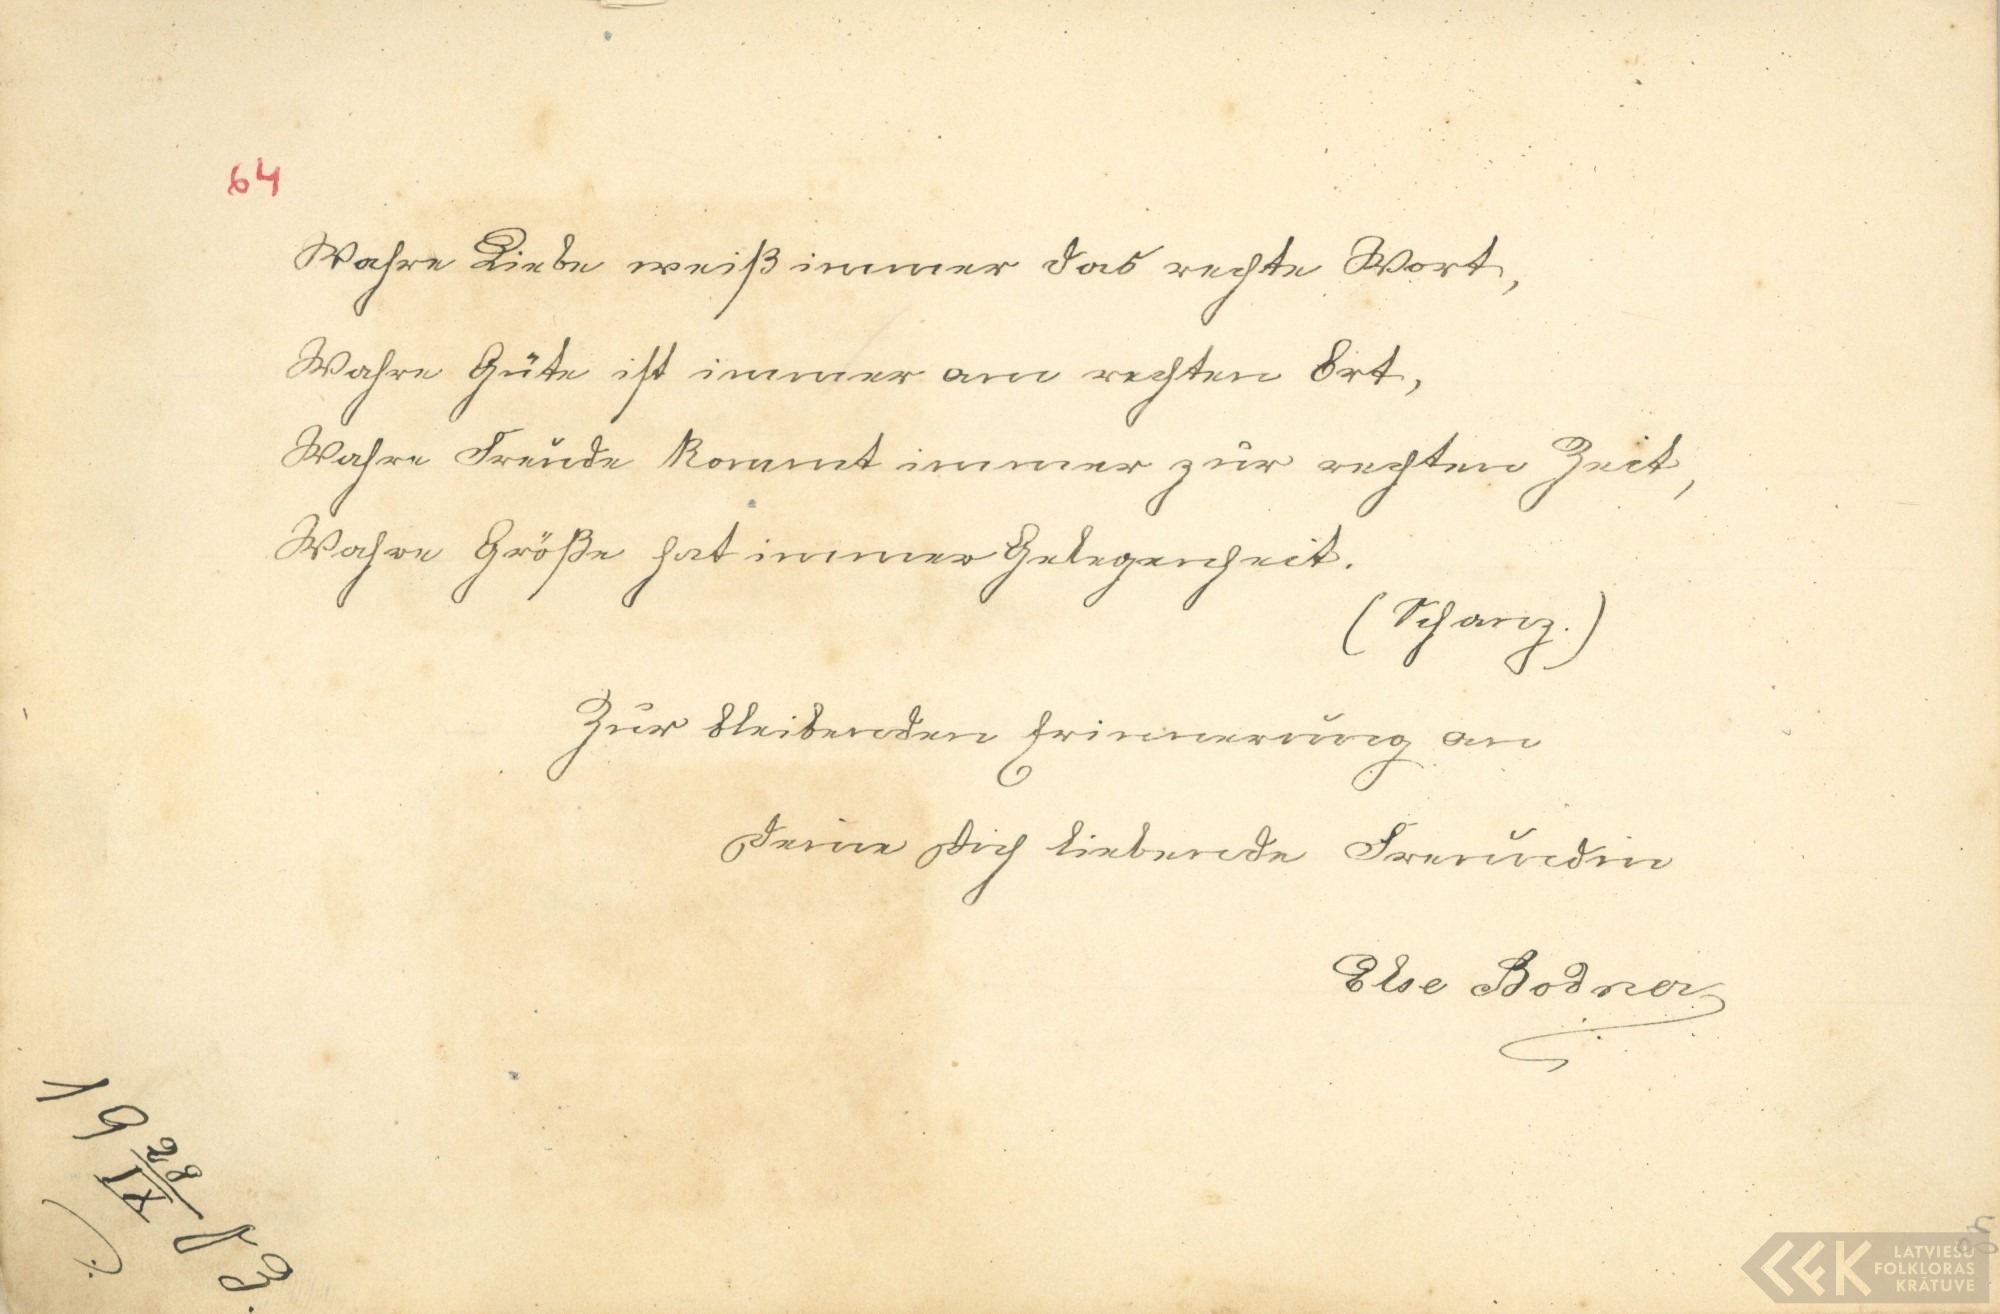 64
Wahre Liebe weiß immer das rechte Wort,
Wahre Güte ist immer am rechten Ort,
Wahre Freude kommt immer zur rechten Zeit,
Wahre Größe hat immer Gelegenheit.
(Schanz.)
Zur bleibenden Erinnerung an
Deine Dich liebende Freundin
Else Bodner
19 28/IX 13.
LATVIEŠU
FOLKLORAS
KRĀTUVE